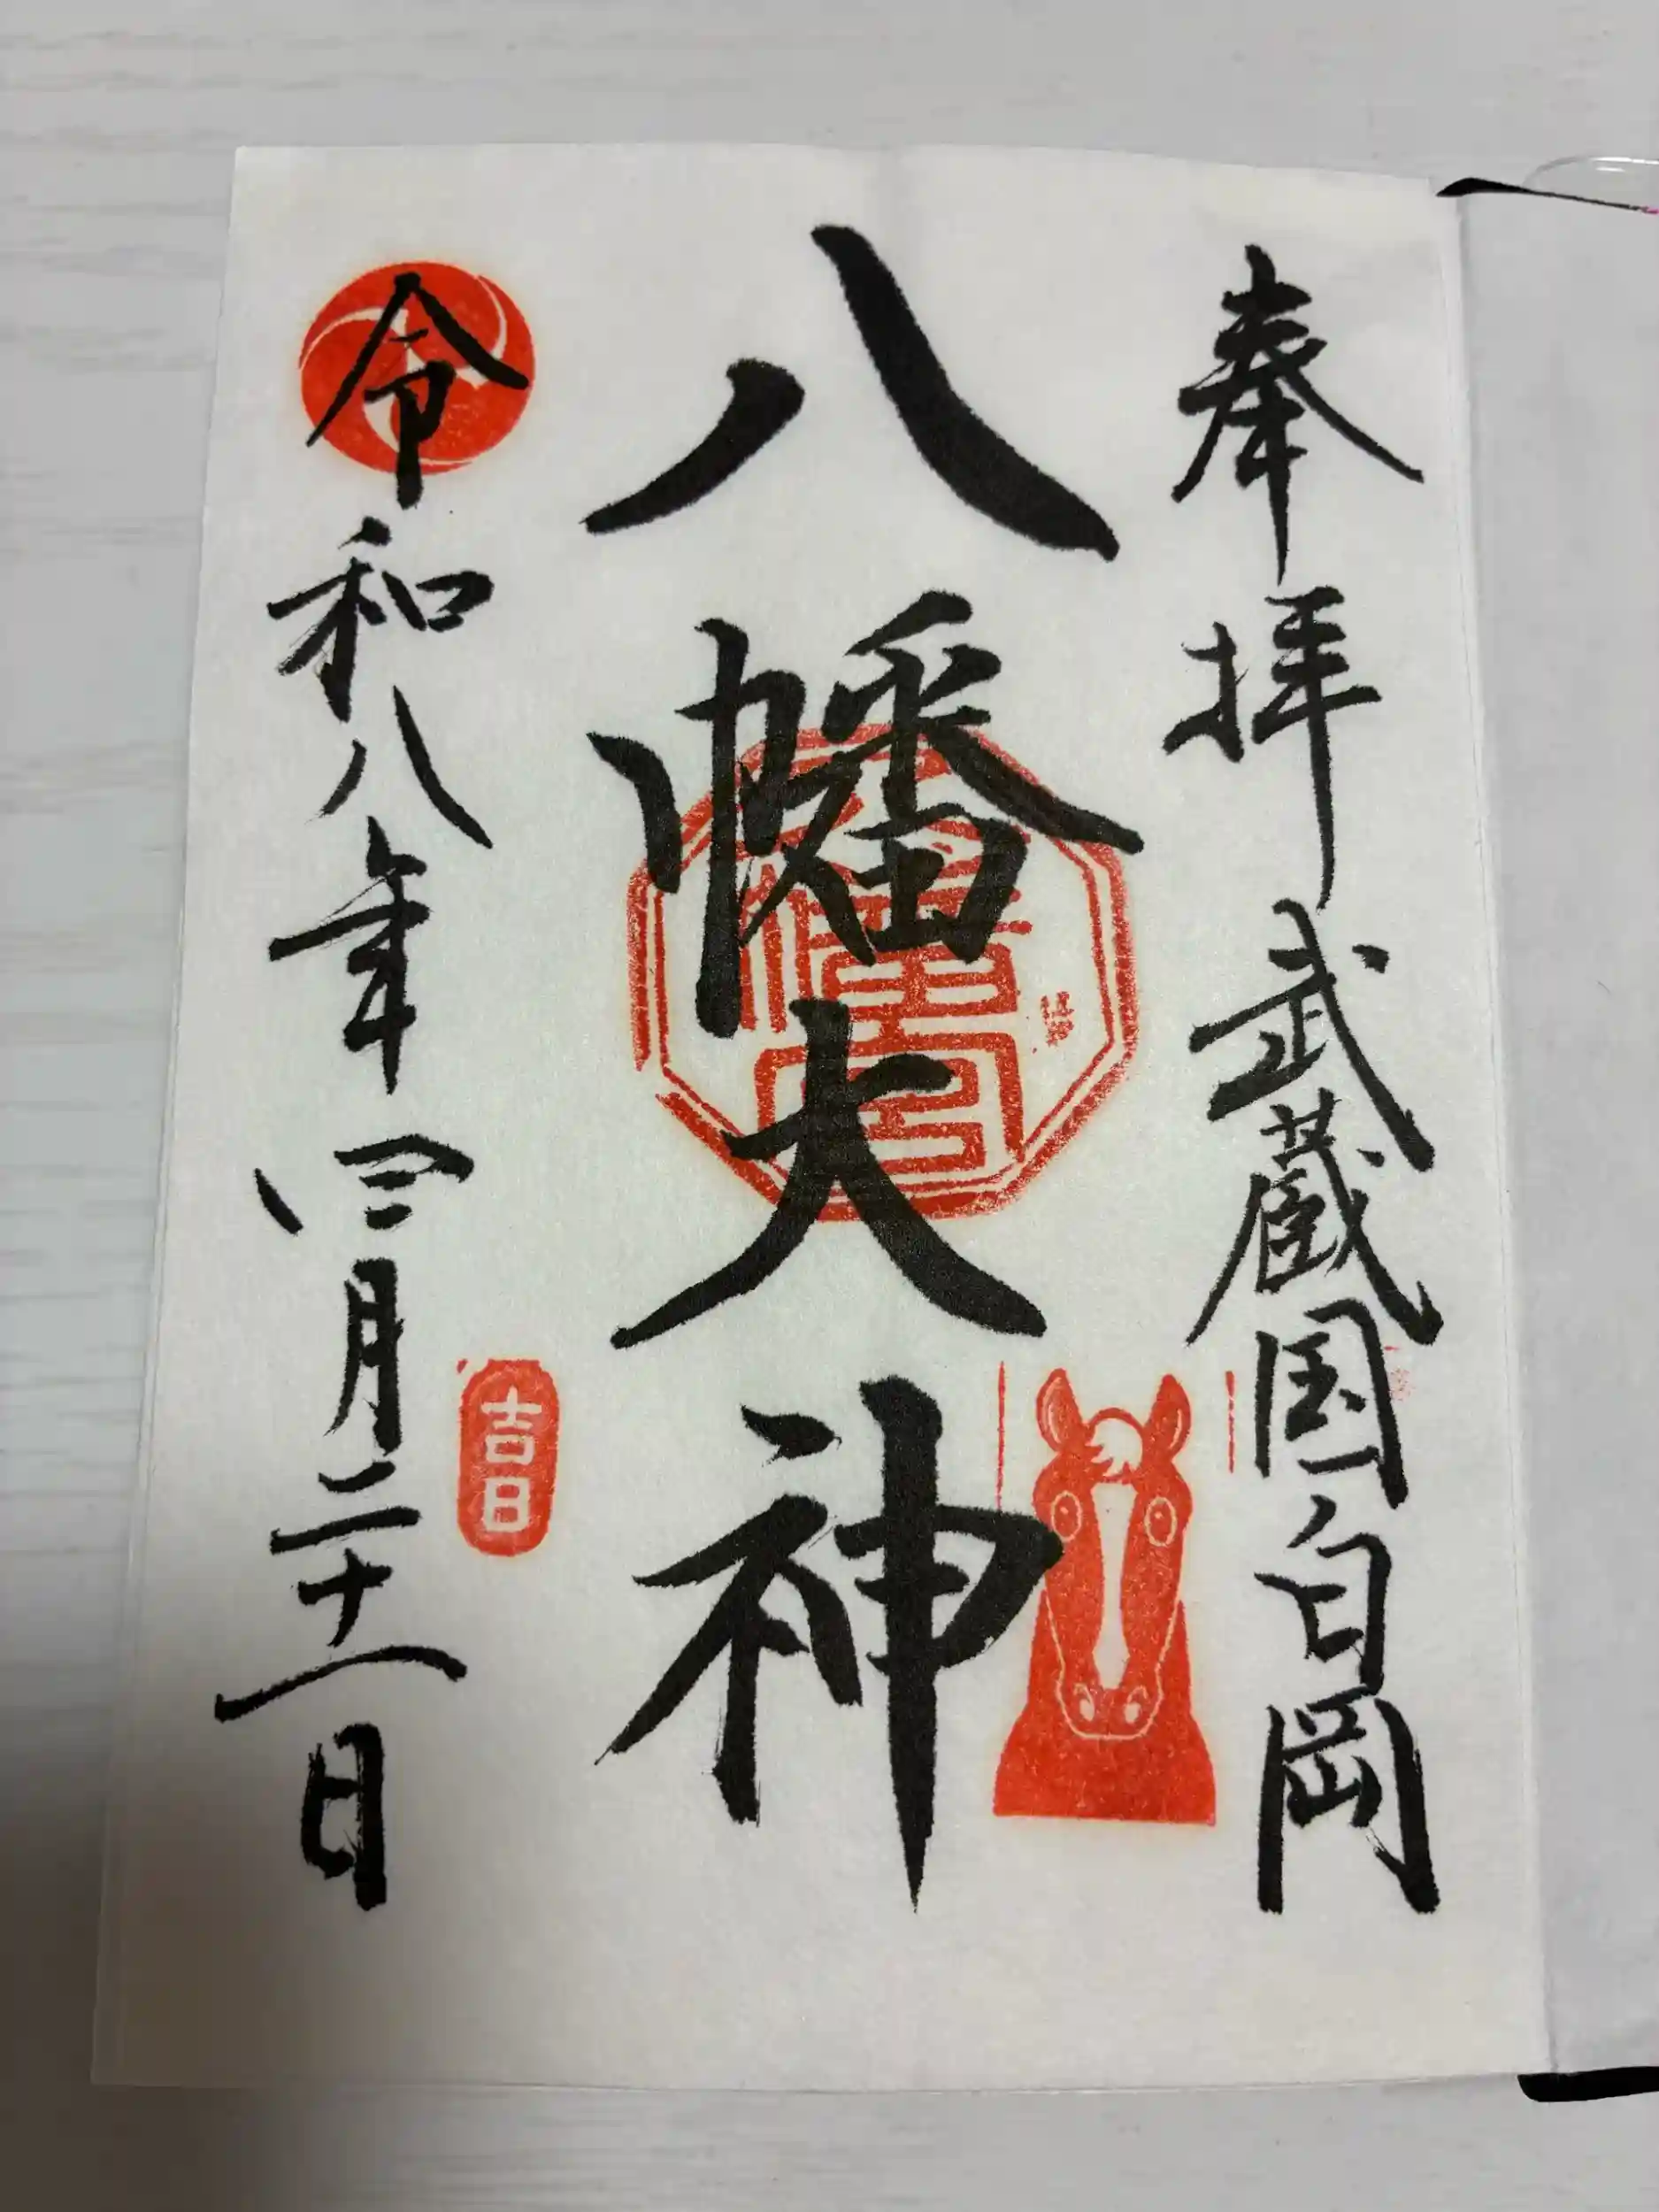 奉拝 武蔵国白岡
八幡大神
令和八年四月二十一日
吉日